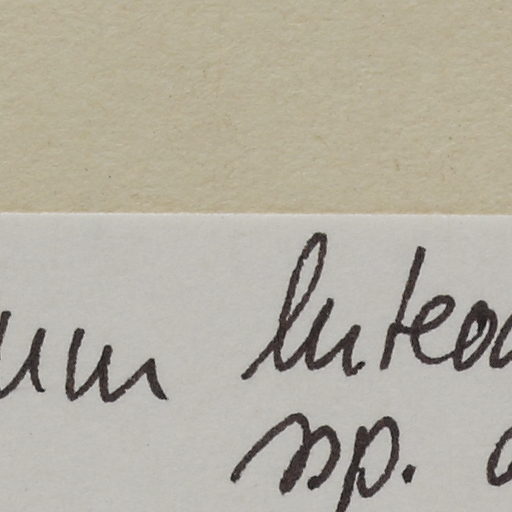 um luteo
sp.